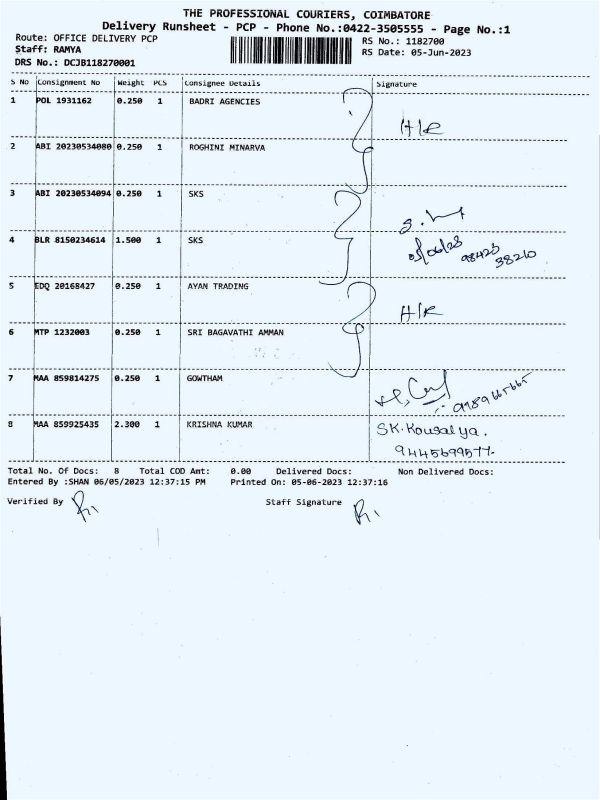 THE PROFESSIONAL COURIERS, COIMBATORE
Delivery Runsheet - PCP - Phone No.:0422-3505555 - Page No.:1
Route: OFFICE DELIVERY PCP
RS No.: 1182700
Staff: RAMYA
RS Date: 05-Jun-2023
DRS No.: DCJB118270001
S No Consignment No Weight PCS Consignee Details Signature
1 POL 1931162 0.250 1 BADRI AGENCIES
H/R
2 ABI 20230534080 0.250 1 ROGHINI MINARVA
3 ABI 20230534094 0.250 1 SKS
4 BLR 8150234614 1.500 1 SKS
05/06/23 98423 38210
5 EDQ 20168427 0.250 1 AYAN TRADING
H/R
6 MTP 1232003 0.250 1 SRI BAGAVATHI AMMAN
7 MAA 859814275 0.250 1 GOWTHAM
8 MAA 859925435 2.300 1 KRISHNA KUMAR SK.Kousalya.
9445699577.
Total No. Of Docs: 8 Total COD Amt: 0.00 Delivered Docs: Non Delivered Docs:
Entered By :SHAN 06/05/2023 12:37:15 PM Printed On: 05-06-2023 12:37:16
Verified By Staff Signature